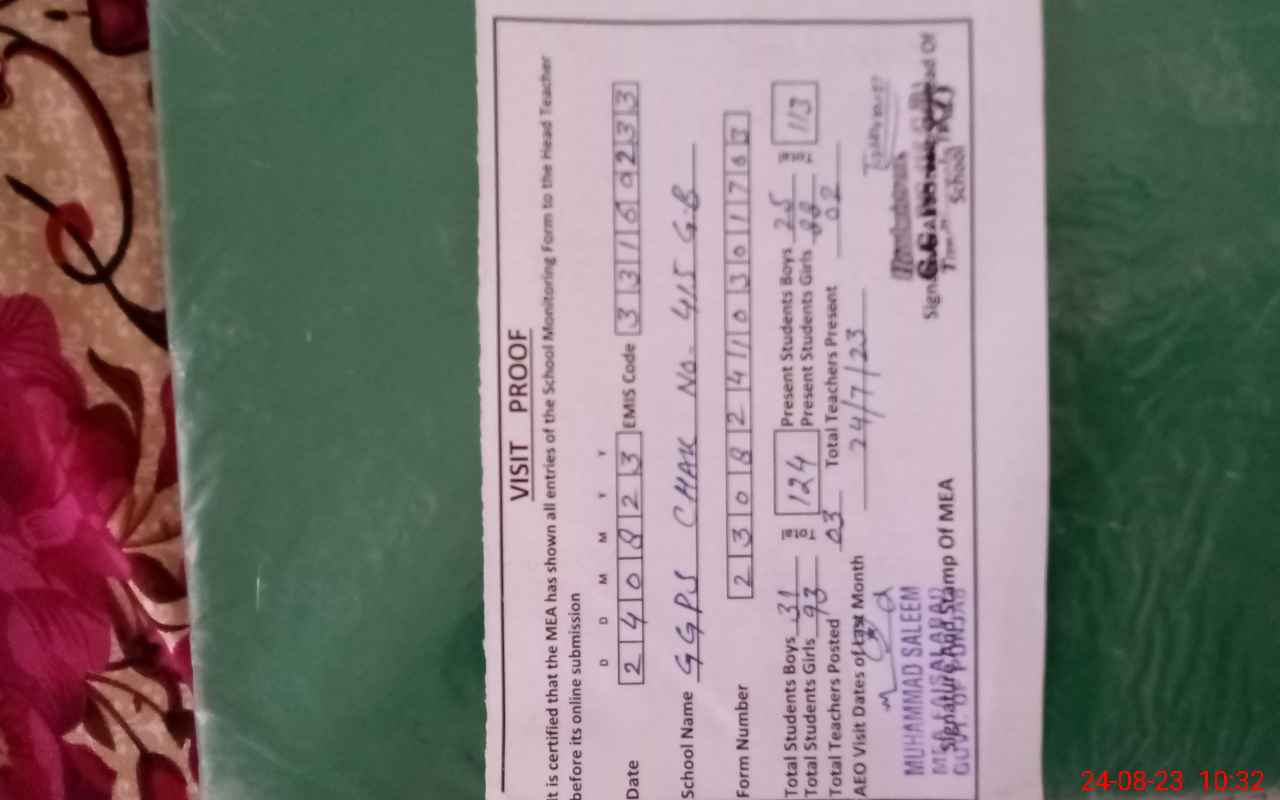 VISIT PROOF
It is certified that the MEA has shown all entries of the School Monitoring Form to the Head Teacher
before its online submission
D D M M Y Y
Date 2 4 0 8 2 3 EMIS Code 3 3 1 6 0 2 3 3
School Name GGPS CHAK No. 415 GB
Form Number 2 3 0 8 2 4 1 1 0 3 0 1 7 6 3
Total Students Boys 31 Total 124 Present Students Boys 25 Total 113
Total Students Girls 93 Present Students Girls 88
Total Teachers Posted 03 Total Teachers Present 02
AEO Visit Dates of Last Month 24/7/23
MUHAMMAD SALEEM
MEA FAISALABAD
GOVT. OF PUNJAB
Signature And Stamp Of MEA
School
24-08-23 10:32